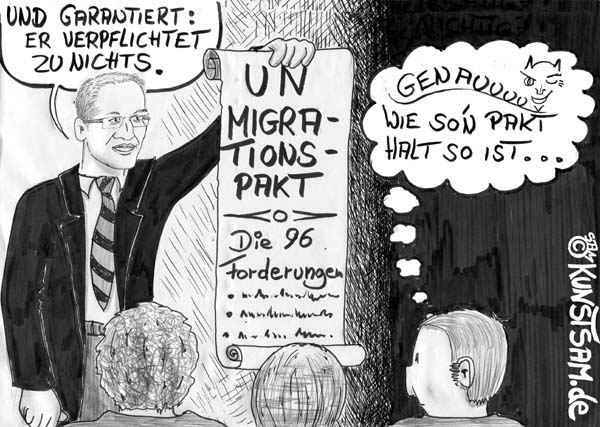 UND GARANTIERT:
ER VERPFLICHTET
ZU NICHTS.
UN
MIGRA-
TIONS-
PAKT
Die 96
Forderungen
GENAUUUUU
WIE SO'N PAKT
HALT SO IST...
© KUNSTSAM.de